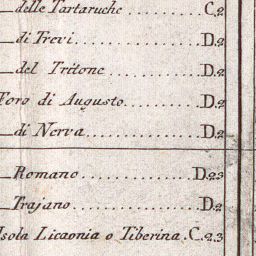 delle Tartaruche ........ C.2
_ di Trevi .............. D.2
_ del Tritone ........... D.2
Foro di Augusto ......... D.2
_ di Nerva .............. D.2
_ Romano ................ D.2.3
_ Trajano ............... D.2
Isola Licaonia o Tiberina . C.2.3